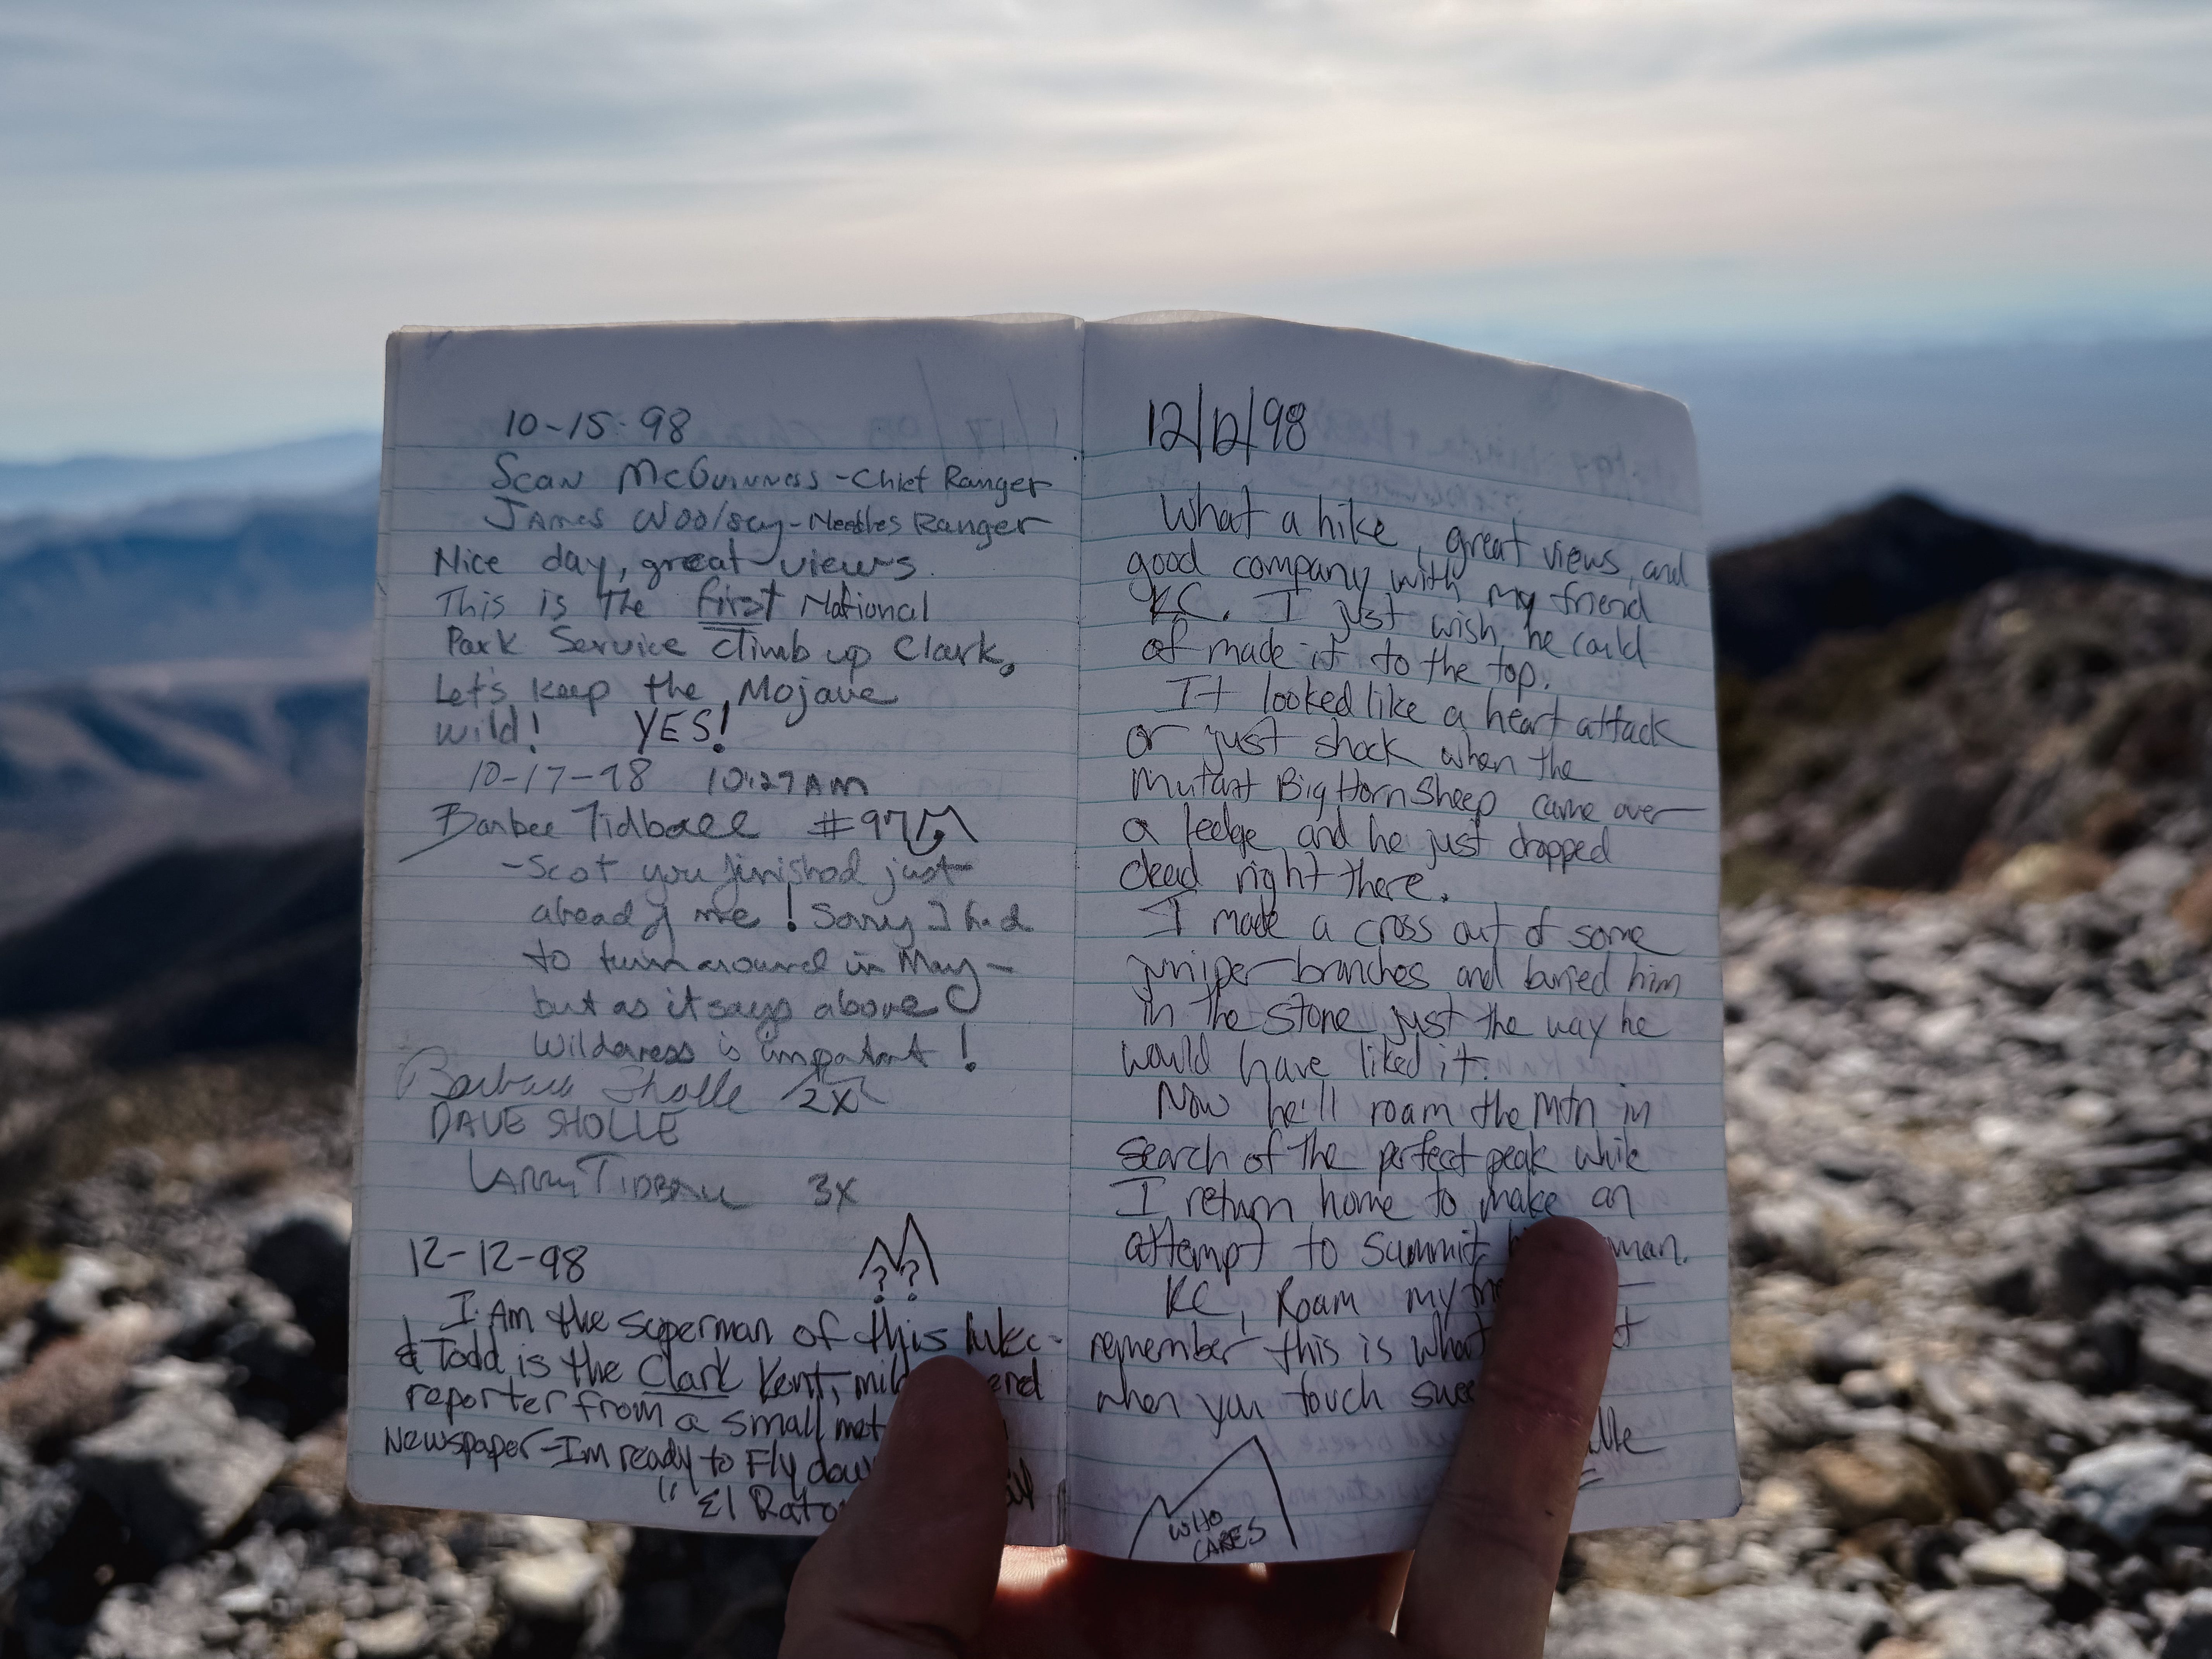 10-15-98
Sean McGuinness - Chief Ranger
James Woolsey - Needles Ranger
Nice day, great views.
This is the first National
Park Service climb up Clark.
Let's keep the Mojave
wild! YES!
10-17-98 10:27AM
Barbee Tidball #97
- Scot you finished just
ahead of me! Sorry I had
to turn around in May -
but as it says above
Wilderness is important!
Barbara Sholle 2x
DAVE SHOLLE
LARRY TIDBALL 3x
12-12-98
? ?
I Am the superman of this
& Todd is the Clark Kent,
reporter from a small
Newspaper - Im ready to Fly
"El
12/12/98
What a hike, great views, and
good company with my friend
KC. I just wish he could
of made it to the top.
It looked like a heart attack
or just shock when the
Mutant Big Horn Sheep came over
a ledge and he just dropped
dead right there.
I made a cross out of some
juniper branches and buried him
in the stone just the way he
would have liked it.
Now he'll roam the Mtn in
search of the perfect peak while
I return home to make an
attempt to summit
KC, Roam my
remember this is
when you touch
WHO
CARES